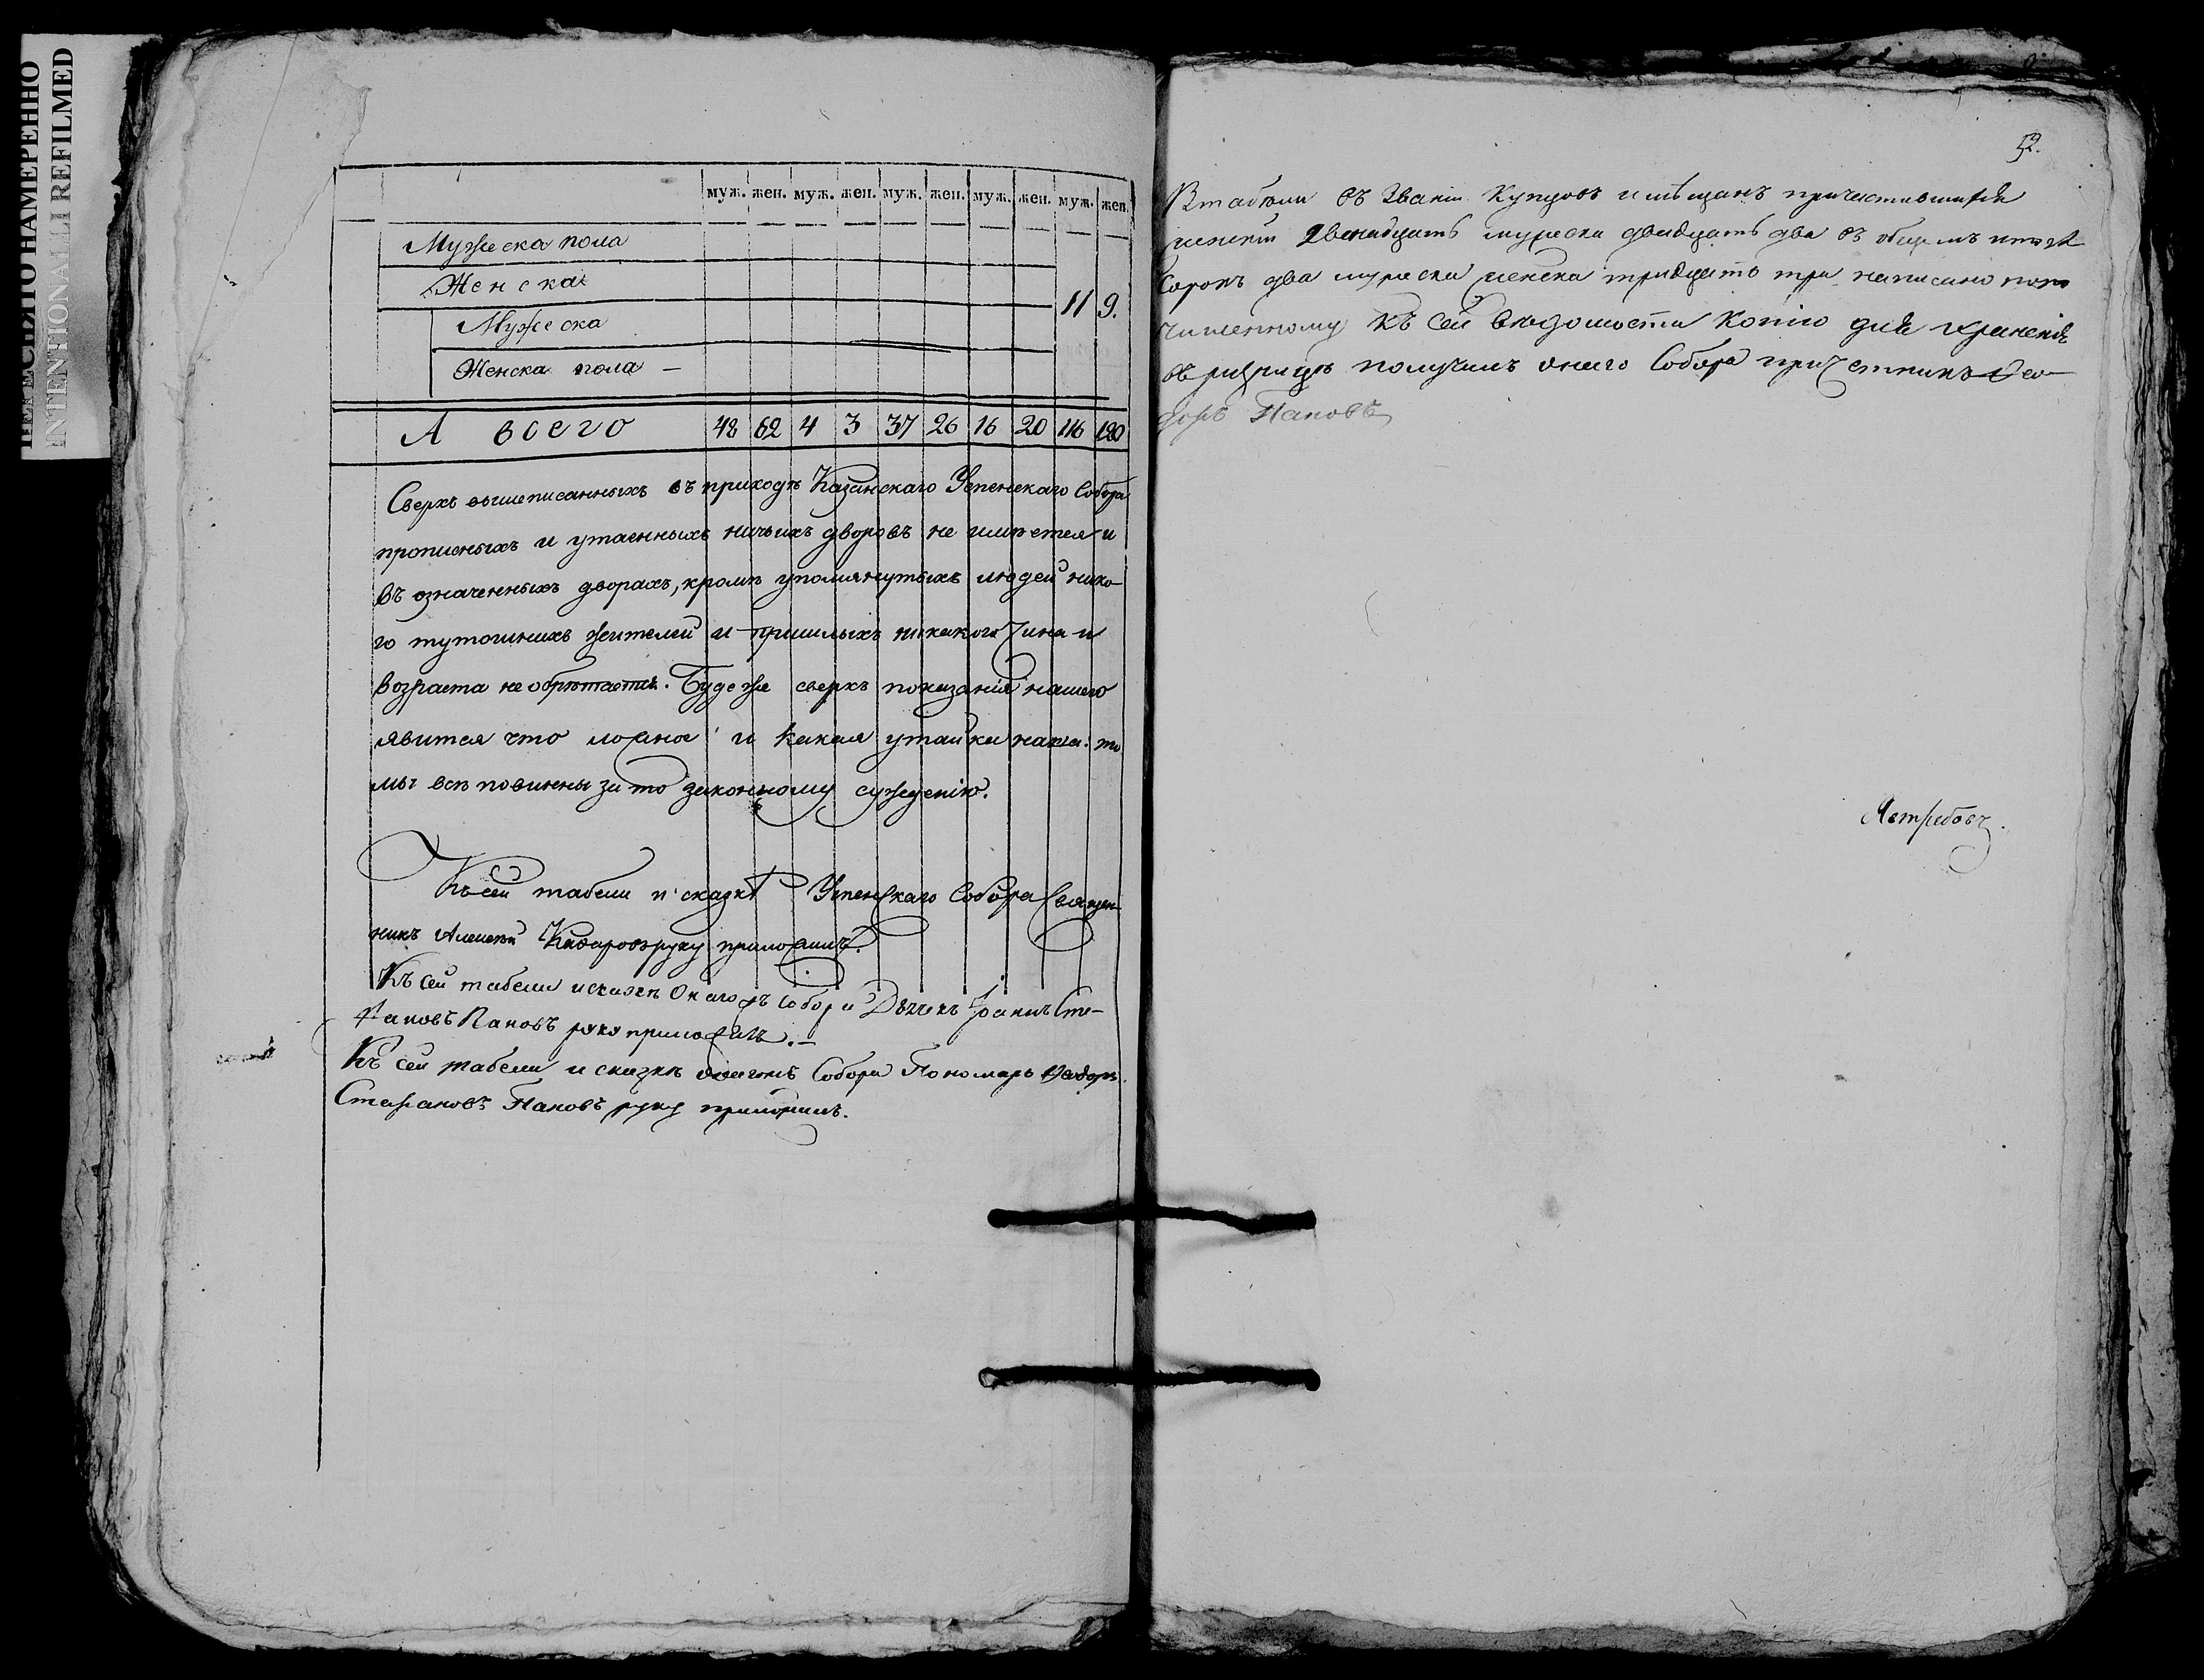 ПЕРЕСНЯТО НАМЕРЕННО
INTENTIONALLI REFILMED
муж. жен. муж. жен. муж. жен. муж. жен. муж. жен.
Мужеска пола
Женска
11 9.
Мужеска
Женска пола —
А всего 48 62 4 3 37 26 16 20 116 120
Сверхъ вышеписанныхъ въ приходѣ Казанскаго Успенскаго Собора
прописныхъ и утаенныхъ ничьихъ дворовъ не имѣется и
въ означенныхъ дворахъ, кромѣ упомянутыхъ людей нико-
го тутошнихъ жителей и пришлыхъ никакого чина и
возраста не обрѣтается. Буде же сверхъ показанія нашего
явится что ложное и какая утайка наша: то
мы всѣ повинны за то законному сужденію.
Къ сей табели и сказкѣ Успенскаго Собора Священ-
никъ Алексѣй руку приложилъ.
Къ сей табели и сказкѣ Онагожъ Собора Дьячекъ Іоаннъ Сте-
фановъ Пановъ руку приложилъ. —
Къ сей табели и сказкѣ Собора Пономарь Ѳеодоръ
Стефановъ Пановъ руку приложилъ.
52.
В табели въ Званіи Купцовъ и мѣщанъ причастившихся
двенадцать мужеска двадцать два въ общемъ итогѣ
Сорокъ два мужеска женска тридцать три написано по
численному къ сей вѣдомости копію для храненія
въ ризницѣ получилъ онаго Собора причетникъ Ѳео-
доръ Пановъ
Ястребовъ.